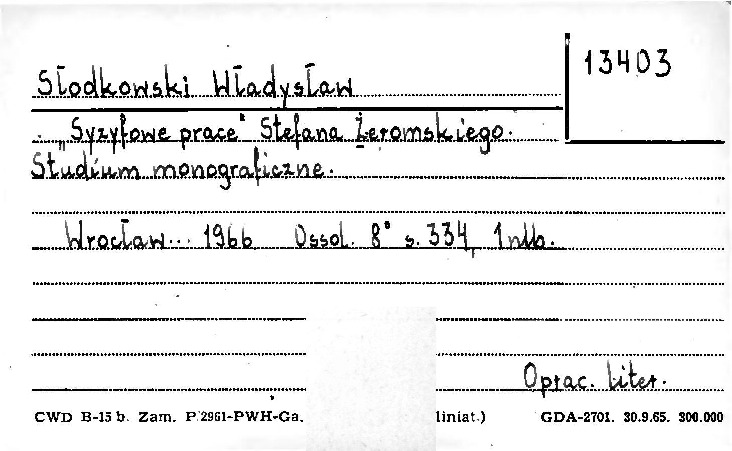 13403
Słodkowski Władysław
„Syzyfowe prace" Stefana Żeromskiego.
Studium monograficzne.
Wrocław... 1966 Ossol. 8° s. 334, 1 nlb.
Oprac. liter.
CWD B-15 b. Zam. P 2961-PWH-Ga. liniat.) GDA-2701. 30.9.65. 300.000